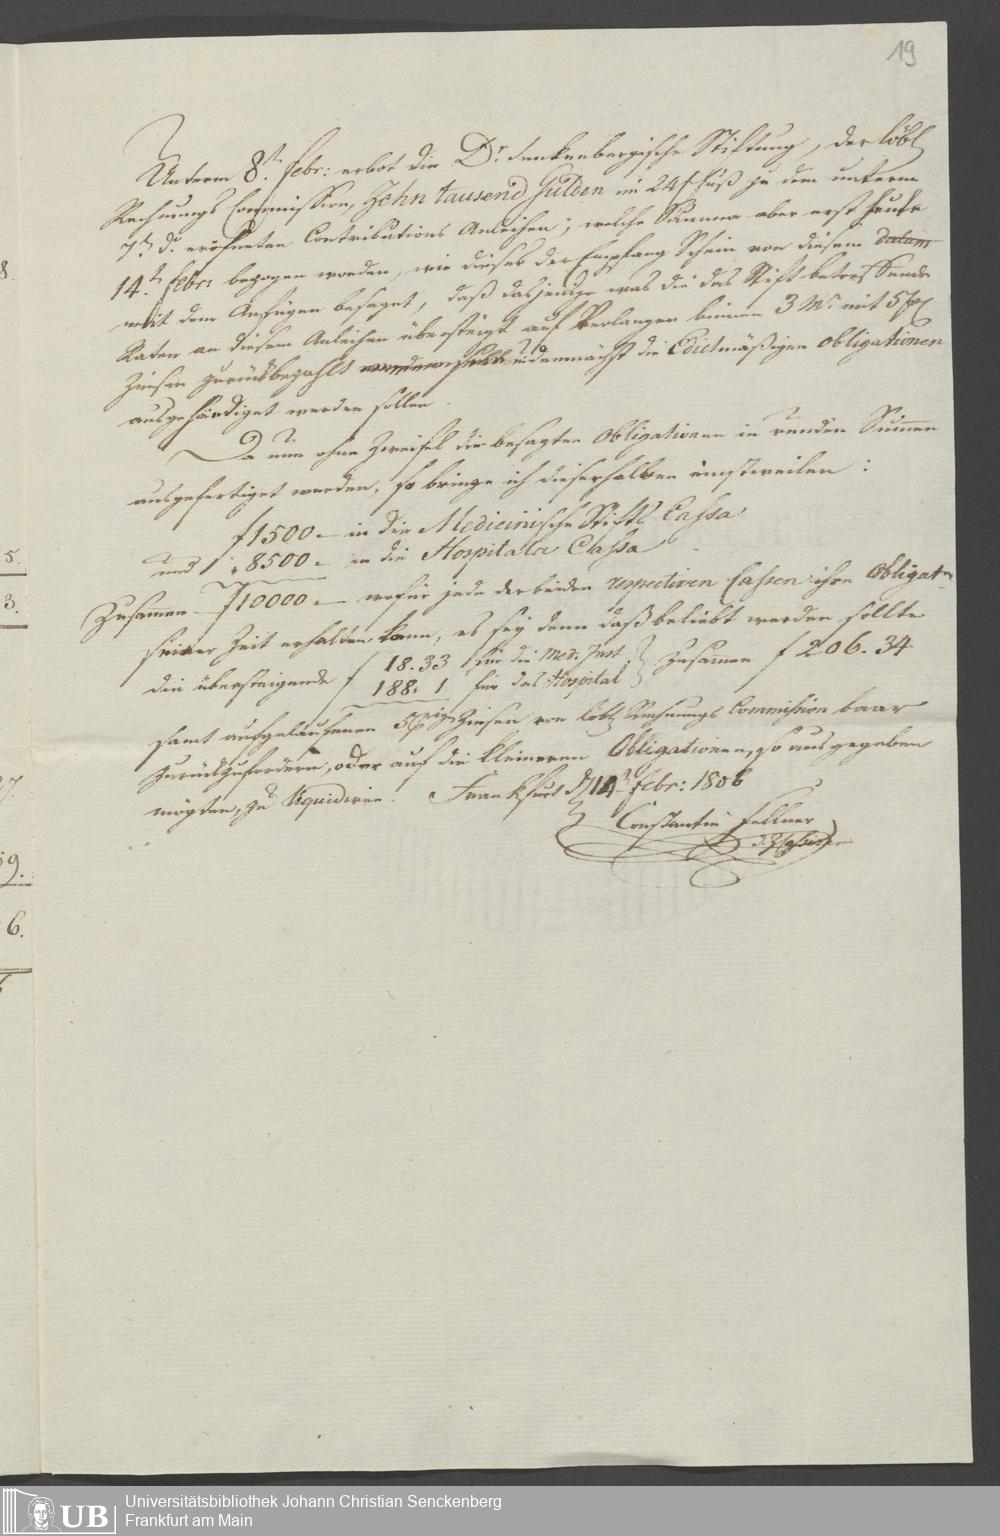 19
Unterm 8t. Febr: erbot die Dr. Senkenbergische Stiftung, der löbl
Rechnungs Commission, Zehn tausend Gulden im 24 f Fuß zu dem unterm
7t. d. eröfneten Contributions Anleihen; welche Summa aber erst heute
14t. Febr: bezogen worden, wie dieses der Empfang Schein von diesem datum
mit dem Anfügen besaget, daß dasjenige was die das Stift betreffende
Raten an diesem Anleihen übersteigt auf Verlangen binnen 3 Mt. mit 5 pCt
Zinsen zurückbezahlt demnächst die Edictmäßigen Obligationen
ausgehändiget werden sollen.
Da nun ohne Zweifel die besagten Obligationen in runden Summen
ausgefertiget werden, so bringe ich dieserhalben einstweilen:
f 1500 – in die Medicinische Stifts Cassa
und " 8500 – in die Hospitals Cassa
Zusamen f 10000 – wofür jede der beiden respectiven Cassen ihre Obligatn
seiner Zeit erhalten kann, es sey denn daß beliebt werden sollte
die übersteigende f 18.33 für die Med: Inst } zusamen f 206.34
188. 1 für das Hospital
samt aufgelaufenen Zinsen von löbl Rechnungs Commission baar
zurückzufordern, oder auf die kleineren Obligationen, so ausgegeben
mögten, zu liquidiren. Frankfurt d 14t Febr: 1806
Constantin Fellner
8.
5.
3.
7.
59.
6.
UB
Universitätsbibliothek Johann Christian Senckenberg
Frankfurt am Main